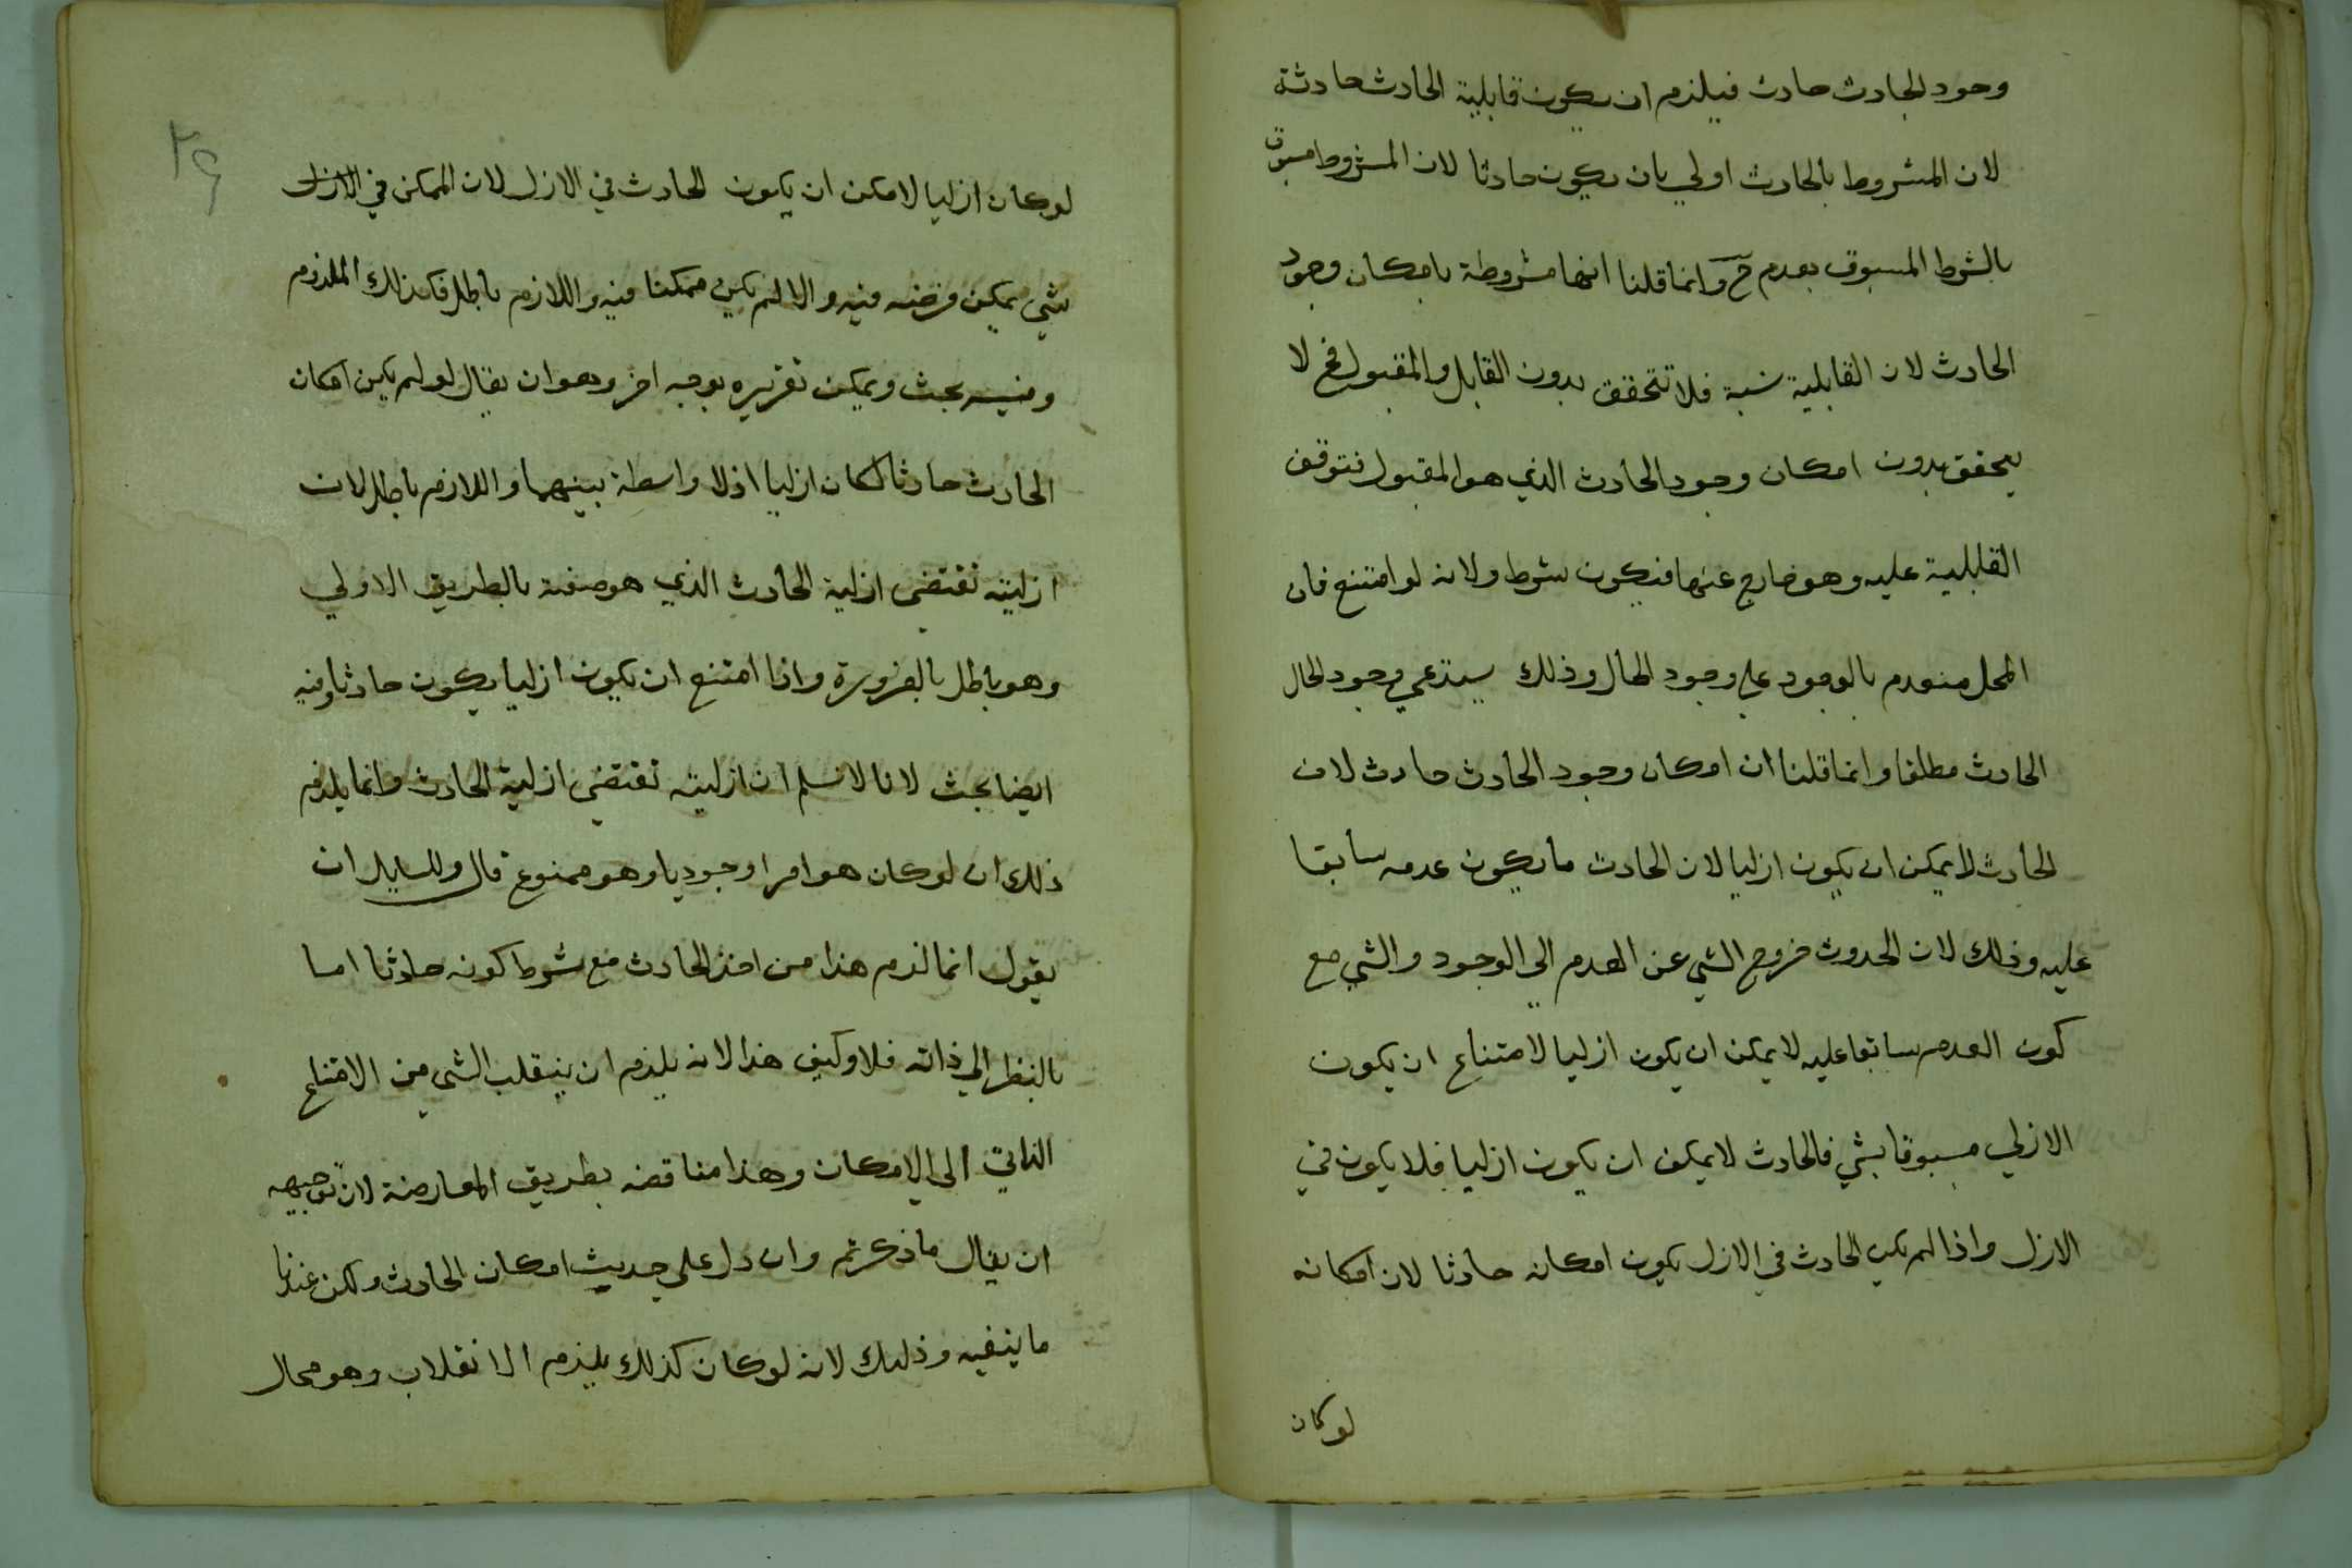 وجود الحادث حادث فيلزم ان يكون قابلية الحادث حادثة
لان المشروط بالحادث اولي بان يكون حادثا لان المشروط مسبوق
بالشرط المسبوق بعدم ح وانما قلنا انها مشروطة بامكان وجود
الحادث لان القابلية نسبة فلا تتحقق بدون القابل والمقبول فح لا
يتحقق بدون امكان وجود الحادث الذي هو المقبول فتوقف
القابلية عليه وهو خارج عنها فيكون شرط ولانه لو امتنع فان
المحل متقدم بالوجود علي وجود الحال وذلك يستدعي وجود الحال
الحادث مطلقا وانما قلنا ان امكان وجود الحادث حادث لان
الحادث لا يمكن ان يكون ازليا لان الحادث ما يكون عدمه سابقا
عليه وذلك لان الحدوث خروج الشي عن العدم الي الوجود والشي مع
كون العدم سابقا عليه لا يمكن ان يكون ازليا لامتناع ان يكون
الازلي مسبوقا بشي فالحادث لا يمكن ان يكون ازليا فلا يكون في
الازل واذا لم يكن الحادث في الازل يكون امكانه حادثا لان امكانه
لو كان
٢٩
لو كان ازليا لامكن ان يكون الحادث في الازل لان الممكن في الازل
شي يمكن فرضه فيه والا لم يكن ممكنا فيه واللازم باطل فكذلك الملزوم
وفيه بحث ويمكن تقريره بوجه اخر وهو ان يقال لو لم يكن امكان
الحادث حادثا لكان ازليا اذ لا واسطة بينهما واللازم باطل لان
ازليته تقتضي ازلية الحادث الذي هو صفة بالطريق الاولي
وهو باطل بالضرورة واذا امتنع ان يكون ازليا يكون حادثا وفيه
ايضا بحث لانا لا نسلم ان ازليته تقتضي ازلية الحادث وانما يلزم
ذلك ان لو كان هو امرا وجوديا وهو ممنوع قال وللسايل ان
يقول انما لزم هذا من اخذ الحادث مع شرط كونه حادثا اما
بالنظر الي ذاته فلا وكيف هذا لانه يلزم ان ينقلب الشي من الامتناع
الذاتي الي الامكان وهذا مناقضه بطريق المعارضة لان توجيهه
ان يقال ما ذكرتم وان دل علي حديث امكان الحادث ولكن عندنا
ما ينفيه وذلك لانه لو كان كذلك يلزم الانقلاب وهو محال